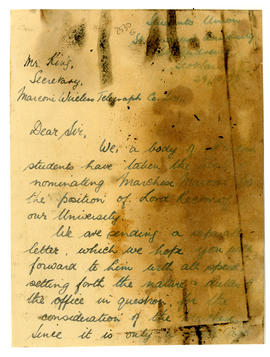 Students Union
Scotland
Mr. King,
Secretary,
Marconi Wireless Telegraph
Dear Sir,
We, a body of
students have taken the
nominating Marchese Marconi for
the position of Lord Rector
our University.
We are sending a separate
letter, which we hope you
forward to him with all speed
setting forth the nature & duties
the office in question, for the
consideration of the
Since it is only